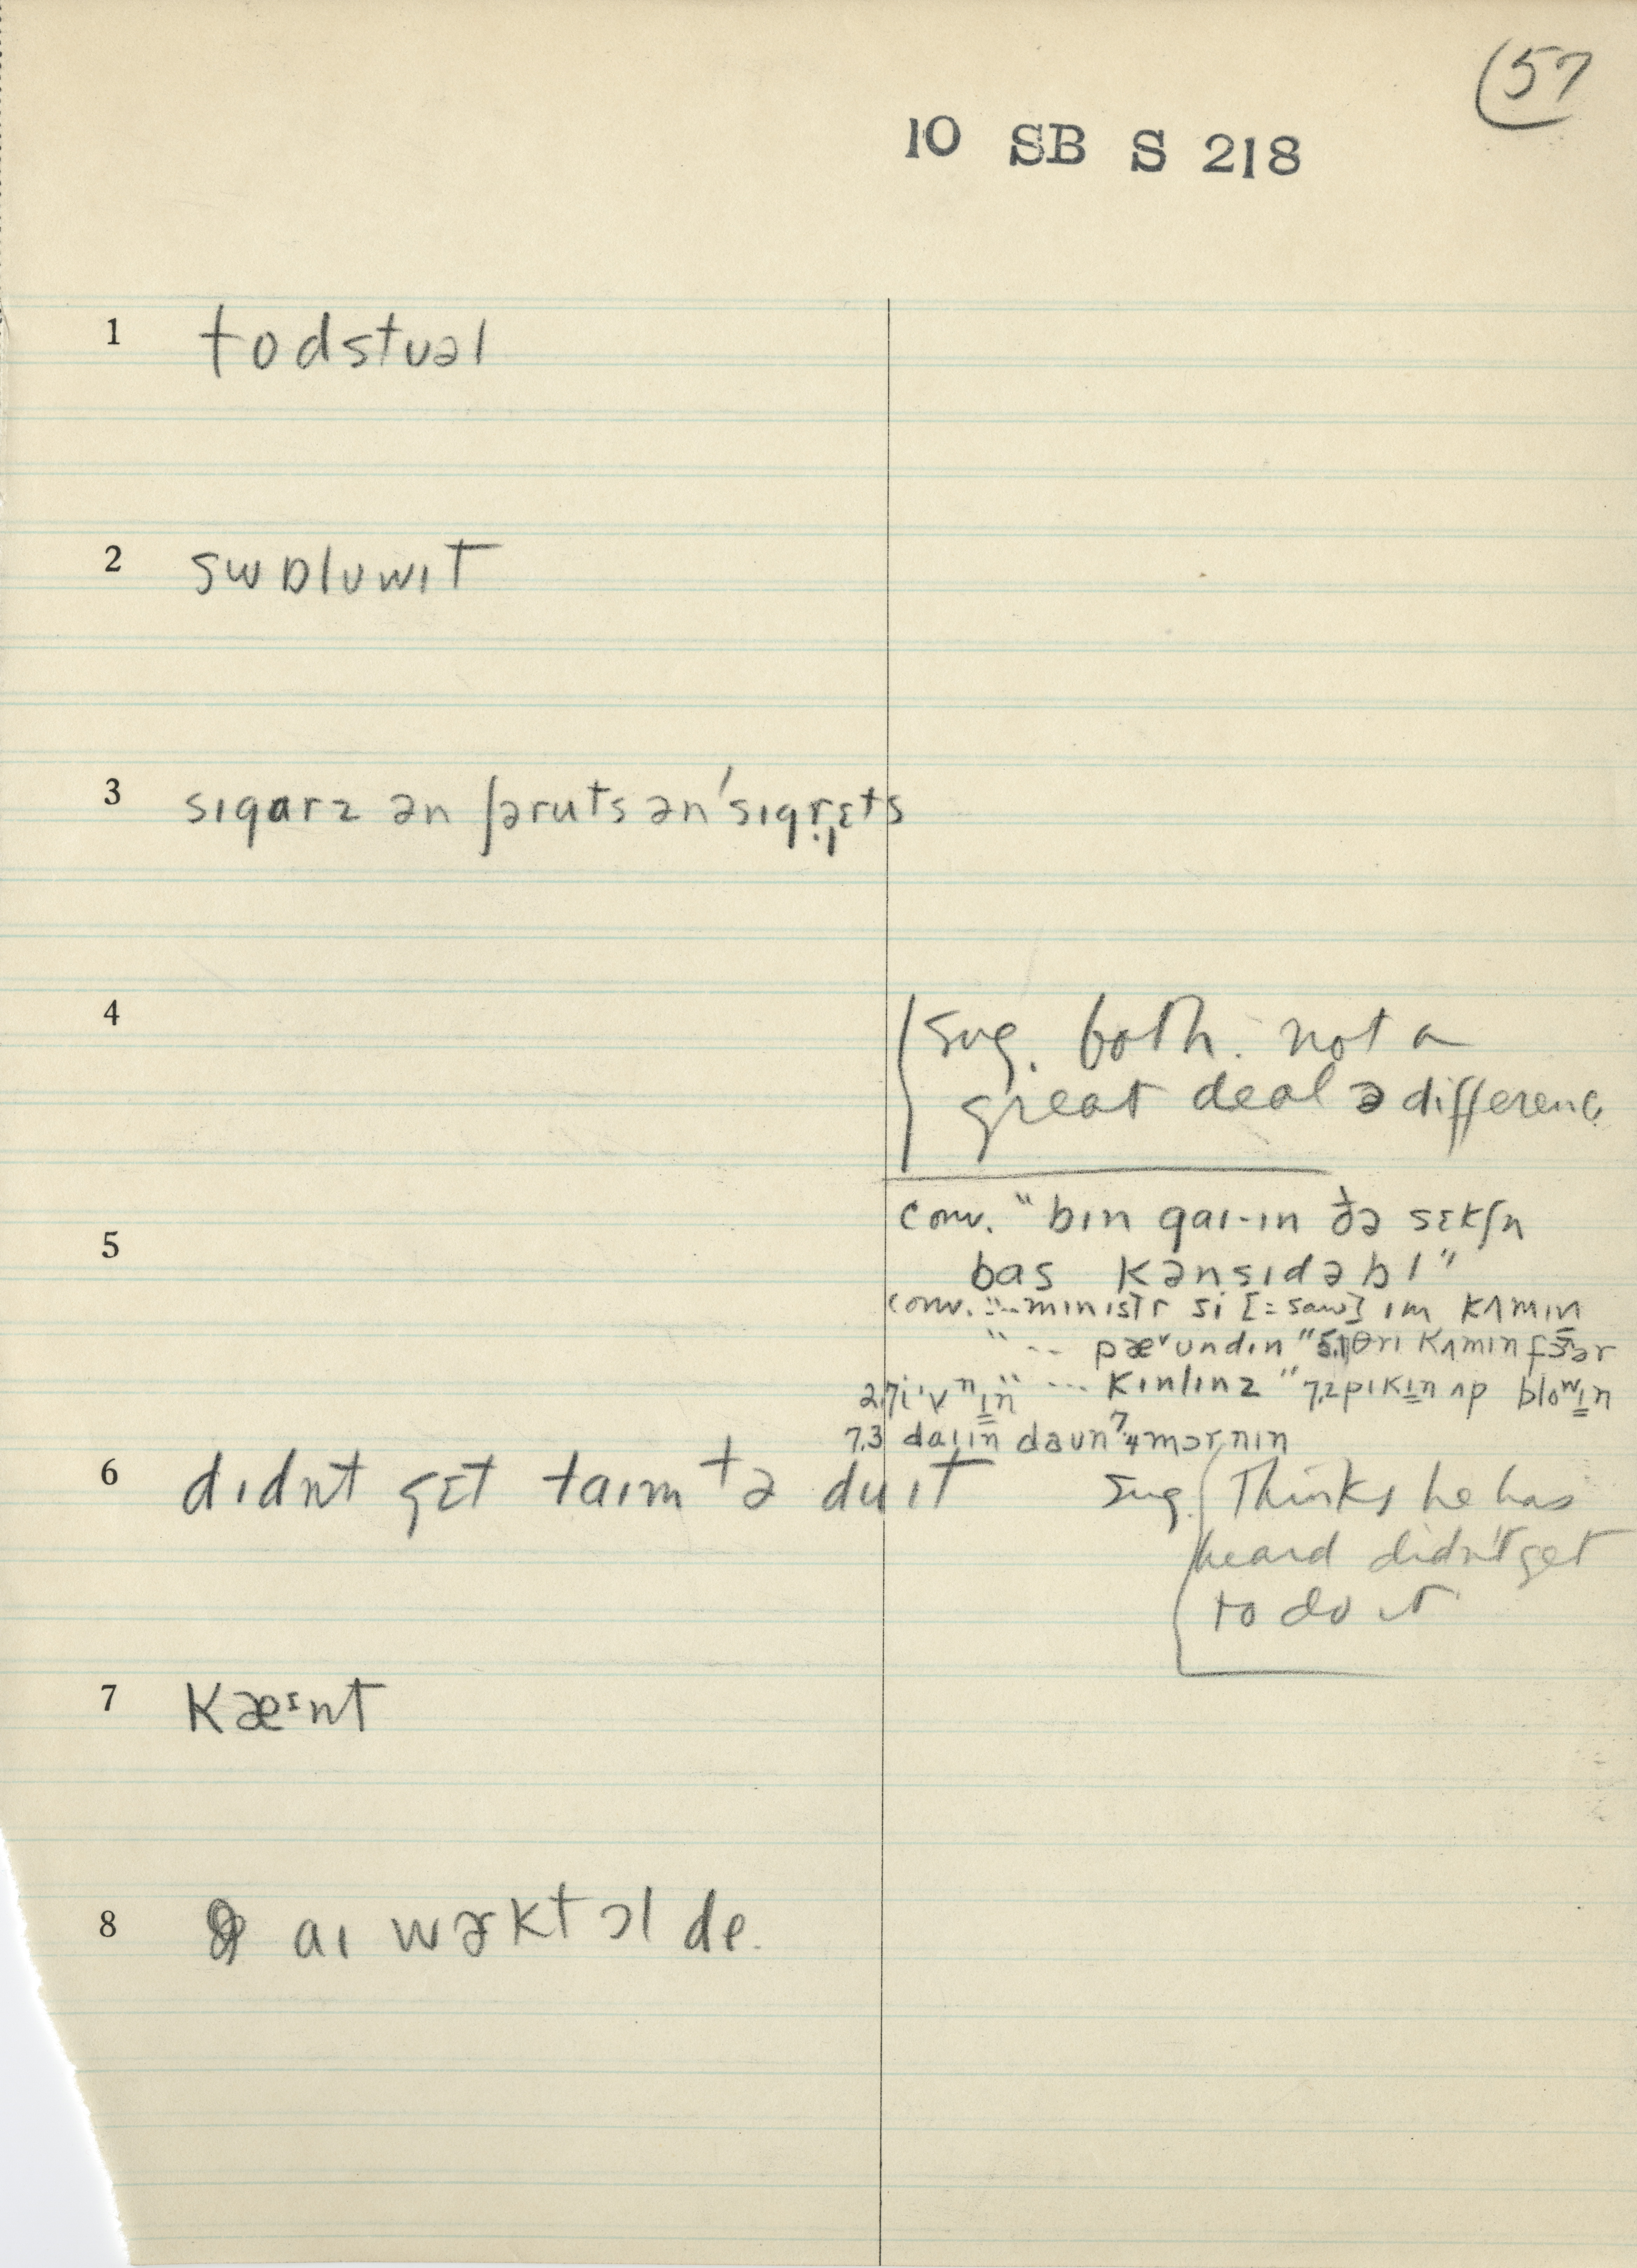 57
10 SB S 218
1 todstuəl
2 swɒluwɪt
3 sɪgarz ən ʃəruts ən ˈsɪgrɛts
4
sug. both. not a
great deal ə difference
conv. "bɪn gaɪ-ɪn ðə sɛkʃn
5
bas kənsɪdəbl"
conv. "...mɪnɪstr si [=saw] ɪm kʌmɪn
" ... pæᵛundɪn "5.1 θri kʌmɪn
2.7 iˑvⁿɪn " ... kɪnlɪnz " 7.2 pɪkɪn ʌp bloʷɪn
7.3 daɪɪn daun 7.4 mɔrnɪn
6 dɪdnt gɛt taɪm tə du ɪt
sug. Thinks he has
heard didn't get
to do it
7 kæᶦnt
8 aɪ wɚkt ɔl de.